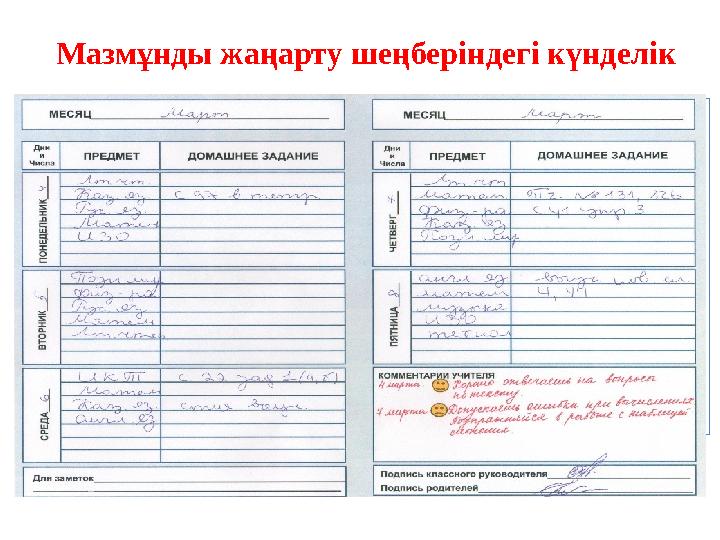 Мазмұнды жаңарту шеңберіндегі күнделік
МЕСЯЦ Март
Дни и Числа ПРЕДМЕТ ДОМАШНЕЕ ЗАДАНИЕ
ПОНЕДЕЛЬНИК
Лит. чт.
Каз. яз. с 27 в тетр.
Рус. яз.
Матем
ИЗО
ВТОРНИК
Позн. мир
физ-ра
Рус. яз.
Матем
Лит. чтен
СРЕДА
ИКТ с 22 зад 2 (а, б)
Матем
Каз. яз.
англ. яз
Для заметок
МЕСЯЦ Март
Дни и Числа ПРЕДМЕТ ДОМАШНЕЕ ЗАДАНИЕ
ЧЕТВЕРГ
Лит. чт
Матем № 131, 126
физ-ра с 41 упр 3
Каз. яз
Позн. мир
ПЯТНИЦА
англ яз
матем 4, 44
музыка
ИЗО
КОММЕНТАРИИ УЧИТЕЛЯ
4 марта Хорошо отвечаешь на вопросы
по тексту.
7 марта Допускаешь ошибки при вычислениях
поупражняйся в работе с таблицей
сложения.
Подпись классного руководителя
Подпись родителей